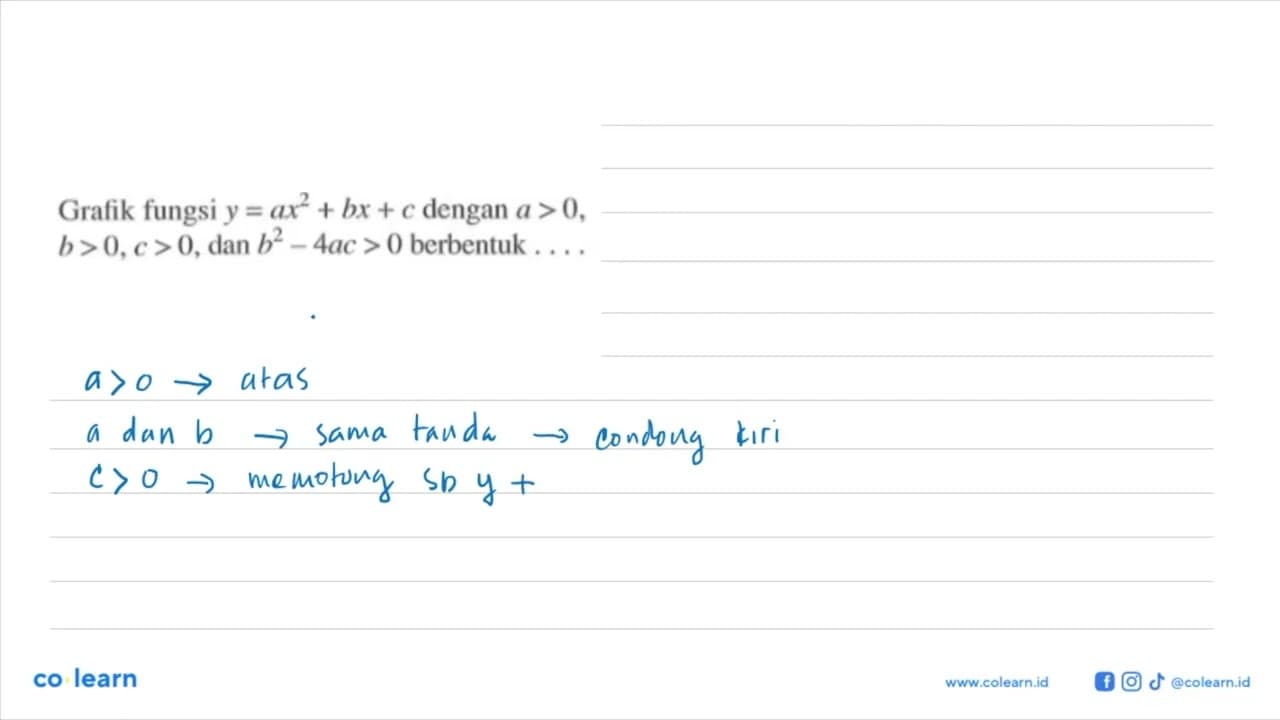 Grafik fungsi y = ax² + bx + c dengan a > 0,
b > 0, c > 0, dan b² – 4ac > 0 berbentuk . . . .
a > 0 → atas
a dan b → sama tanda → condong kiri
c > 0 → memotong sb y +
co learn
www.colearn.id @colearn.id